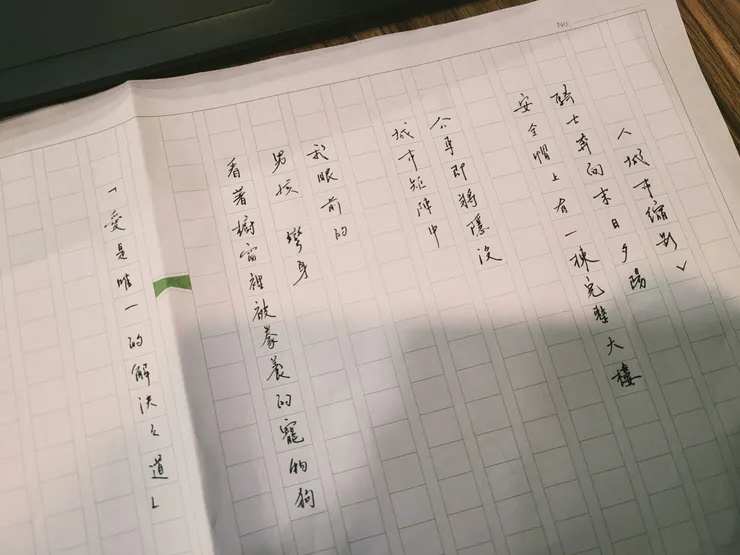 No.
〈城市縮影〉
騎士奔向末日夕陽
安全帽上有一棟完整大樓
公車即將隱沒
城市矩陣中
我眼前的
男孩 彎身
看著櫥窗裡被豢養的寵物狗
「愛是唯一的解決之道」